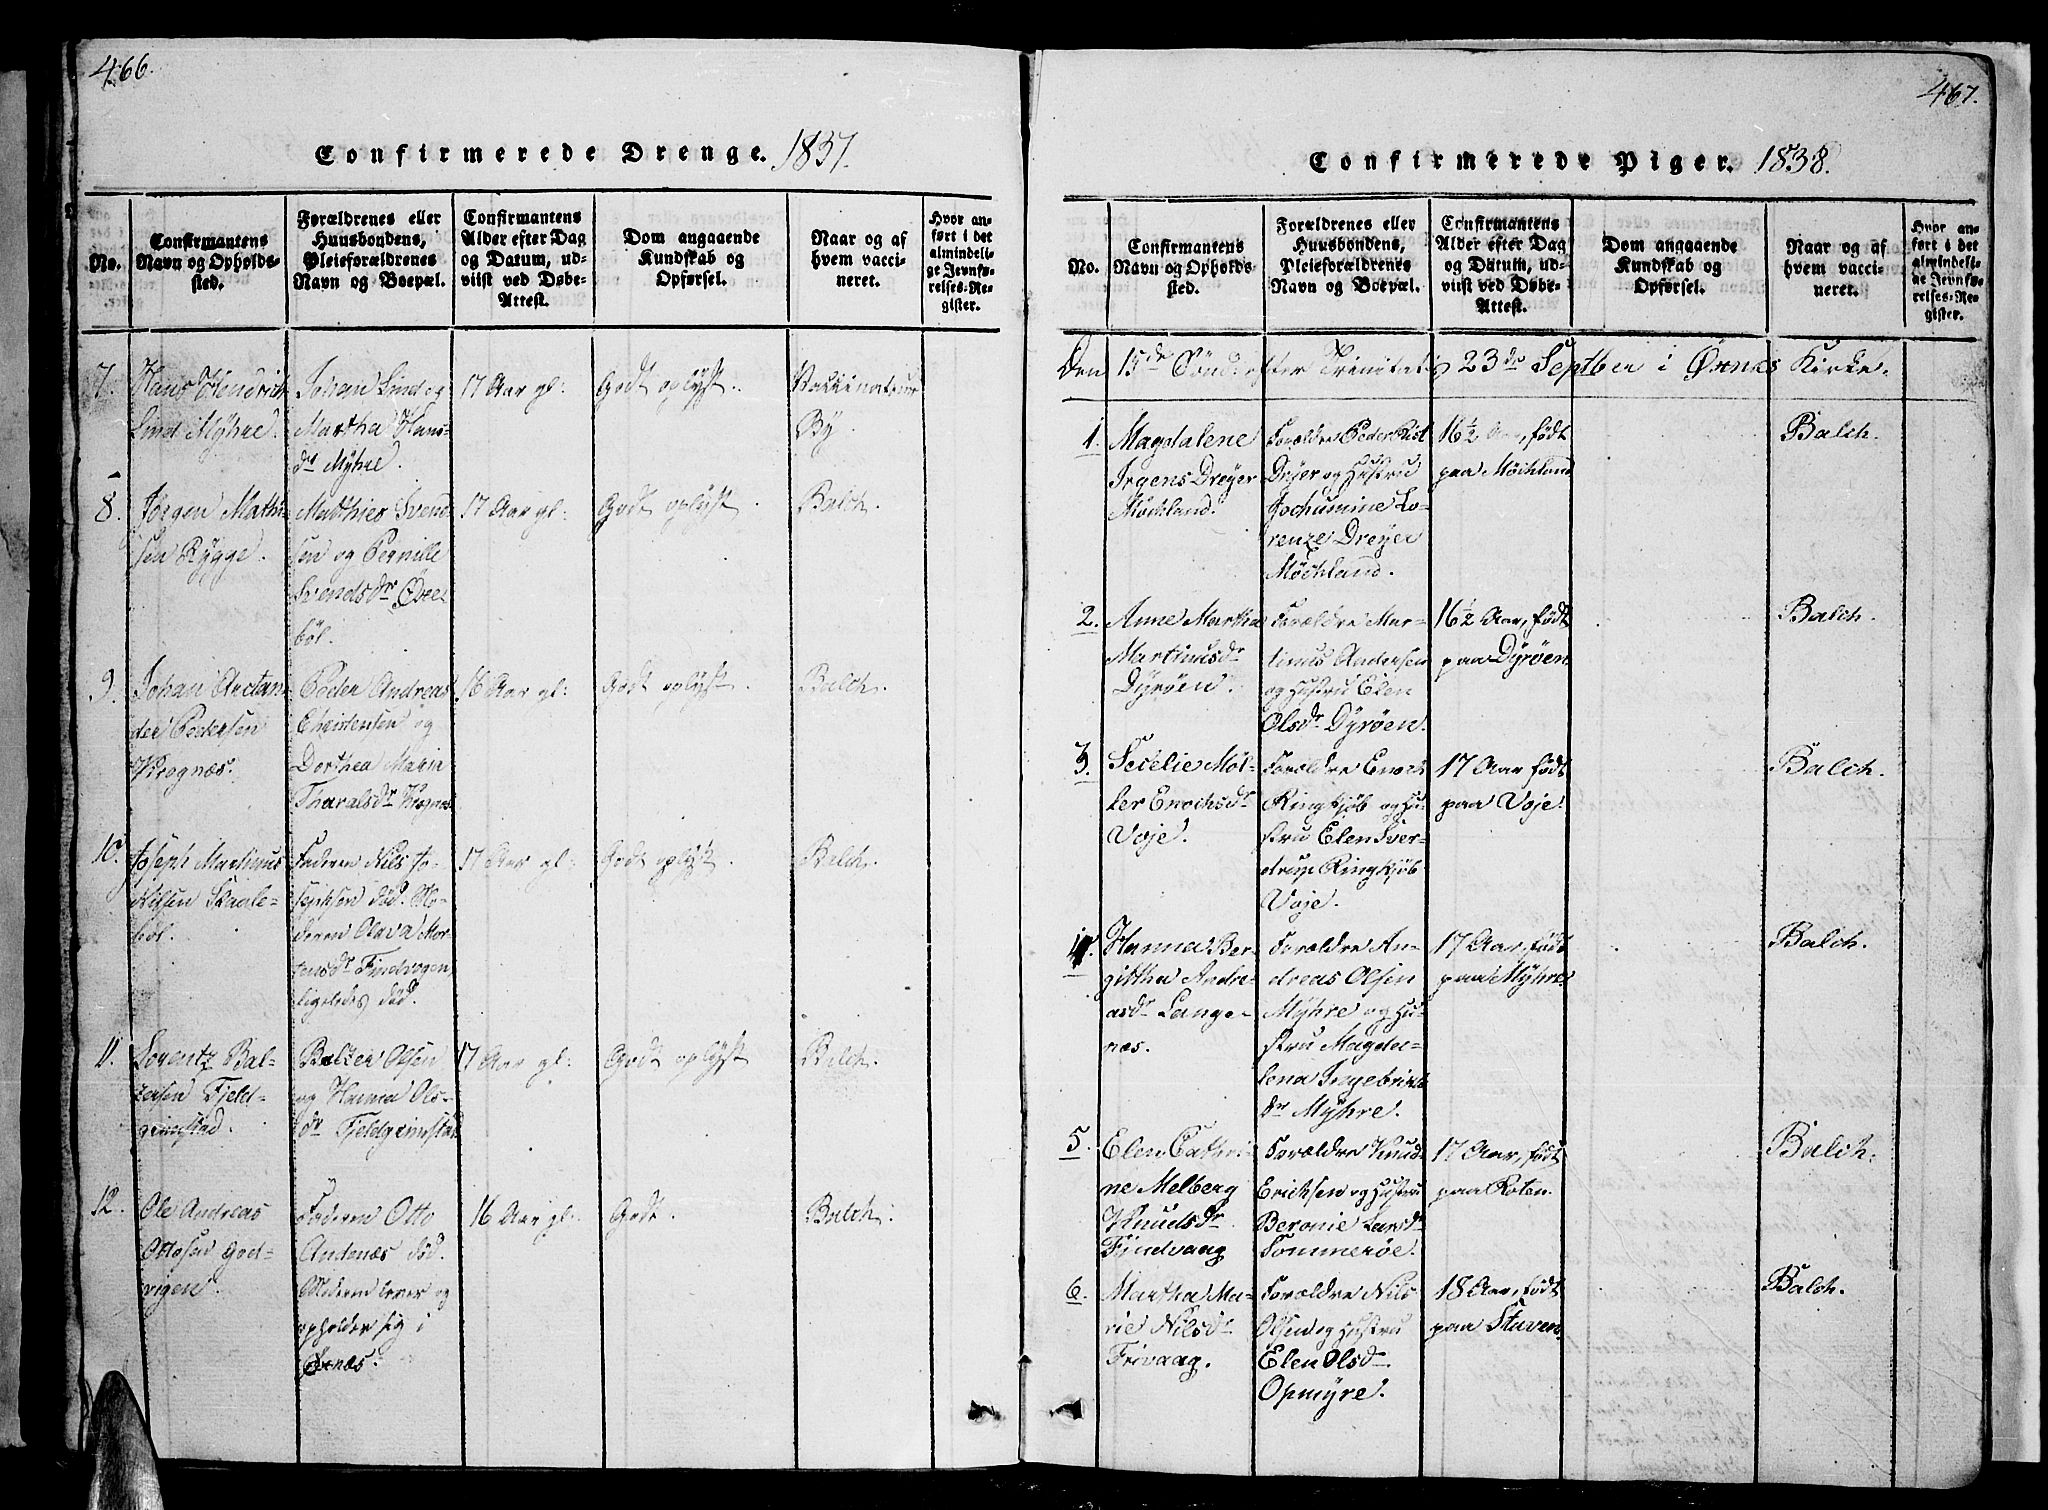 466.
Confirmerede Drenge. 1837.
No.
Confirmantens
Navn og Opholds-
sted.
Forældrenes eller
Huusbondens,
Pleieforældrenes
Navn og Boepæl.
Confirmantens
Alder efter Dag
og Datum, ud-
viist ved Døbe-
Attest.
Dom angaaende
Kundskab og
Opførsel.
Naar og af
hvem vacci-
neret.
Hvor an-
ført i det
almindeli-
ge Jevnfø-
relses-Re-
gister.
7.
Hans Hendrich
Lind Myhre.
Johan Lind og
Martha Hans-
dr Myhre.
17 Aar gl:
Godt oplyst.
Vaccinateur
By
8.
Jörgen Mathi-
sen Rygge.
Matthies Svend-
sen og Pernille
Svendsdr Övre-
böl.
17 Aar gl:
Godt oplyst.
Balch.
9.
Johan Arctan-
der Pedersen
Krognæs.
Peder Andreas
Christensen og
Dorthea Maria
Tharalsdr Krognæs
16 Aar gl:
Godt oplyst.
Balch.
10.
Joseph Martinus
Nilsen Skaale-
böl.
Faderen Nils Jo-
sephsen död. Mo-
deren Olava Mor-
tensdr Findvogen,
ligeledes död.
17 Aar gl:
Godt oplyst.
Balch.
11.
Lorentz Bal-
zersen Fjeld-
grimstad.
Balzer Olsen
og Hanna Ols-
dr Fjeldgrimstad
17 Aar gl:
Godt oplyst
Balch.
12.
Ole Andreas
Ottosen God-
vigen.
Faderen Otto
Andenæs död.
Moderen lever og
opholder sig i
16 Aar gl:
Godt.
Balch.
467.
Confirmerede Piger. 1838.
No.
Confirmantens
Navn og Opholds-
sted.
Forældrenes eller
Huusbondens,
Pleieforældrenes
Navn og Boepæl.
Confirmantens
Alder efter Dag
og Datum, ud-
viist ved Døbe-
Attest.
Dom angaaende
Kundskab og
Opførsel.
Naar og af
hvem vacci-
neret.
Hvor an-
ført i det
almindeli-
ge Jevnfø-
relses-Re-
gister.
Den 15de Sönd: efter Trinitatis 23de Septber i Öxnes Kirke.
1.
Magdalene
Irgens Dreyer
Möchland.
Forældre Peder Rist
Dreyer og Hustru
Jochumine Lo-
renze Dreyer
Möchland.
16½ Aar, födt
paa Möchland
Balch.
2.
Anne Martha
Martinusdr
Dyröen.
Forældre Mar-
tinus Andersen
og Hustru Elen
Olsdr Dyröen.
16½ Aar, födt
paa Dyröen
Balch.
3.
Secelie Möl-
ler Enochsdr
Voje.
Forældre Enoch
Ringkjöb og Hu-
stru Elen Sver-
drup Ringkjöb
Voje.
17 Aar födt
paa Voje.
Balch.
Hanna Ber-
gittha Andre-
asdr Lange-
næs.
Forældre An-
dreas Olsen
Myhre og Hu-
stru Magda-
lena Ingebrikts
dr Myhre.
17 Aar, födt
paa Myhre
Balch.
5.
Elen Cathri-
ne Melberg
Knudsdr
Findvaag
Forældre Knud
Erichsen og Hustru
Beronie Larsdr
Sommeröe.
17 Aar, födt
paa Roten.
Balch.
6.
Martha Ma-
rie Nilsdr
Frivaag.
Forældre Nils
Olsen og Hustru
Elen Olsdr
Opmyre.
18 Aar, födt
paa Staven
Balch.